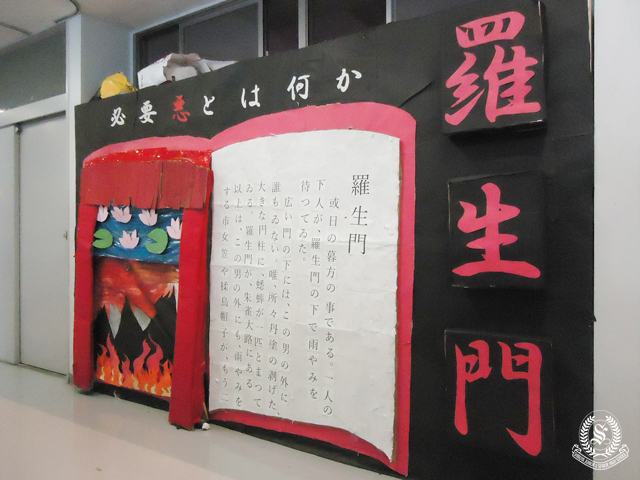 必要悪とは何か
羅生門
羅生門
或日の暮方の事である。一人の
下人が、羅生門の下で雨やみを
待つてゐた。
広い門の下には、この男の外に
誰もゐない。唯、所々丹塗の剥げた、
大きな円柱に、蟋蟀が一匹とまつて
ゐる。羅生門が、朱雀大路にある
以上は、この男の外にも、雨やみを
する市女笠や揉烏帽子が、もう二
S